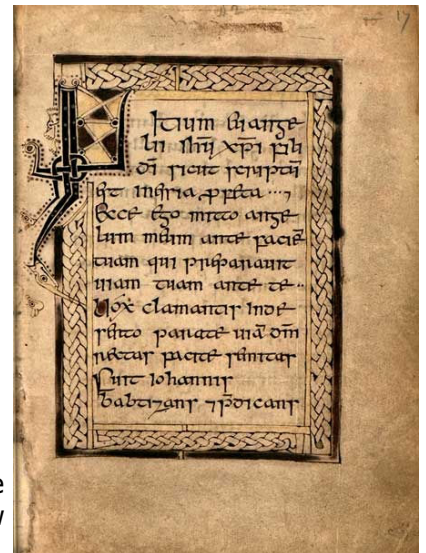 17
INitium euange
lii ihū xpi fili
dī sicut scriptū
est in ꝓfeta
Ecce ego mitto ange
lum meum ante faciē
tuam qui preparauit
uiam tuam ante te
Uox clamantis inde
serto parate uiā dm̄
rectas facite semitas
Fuit iohannis
babtizans ⁊ p̄dicans
e